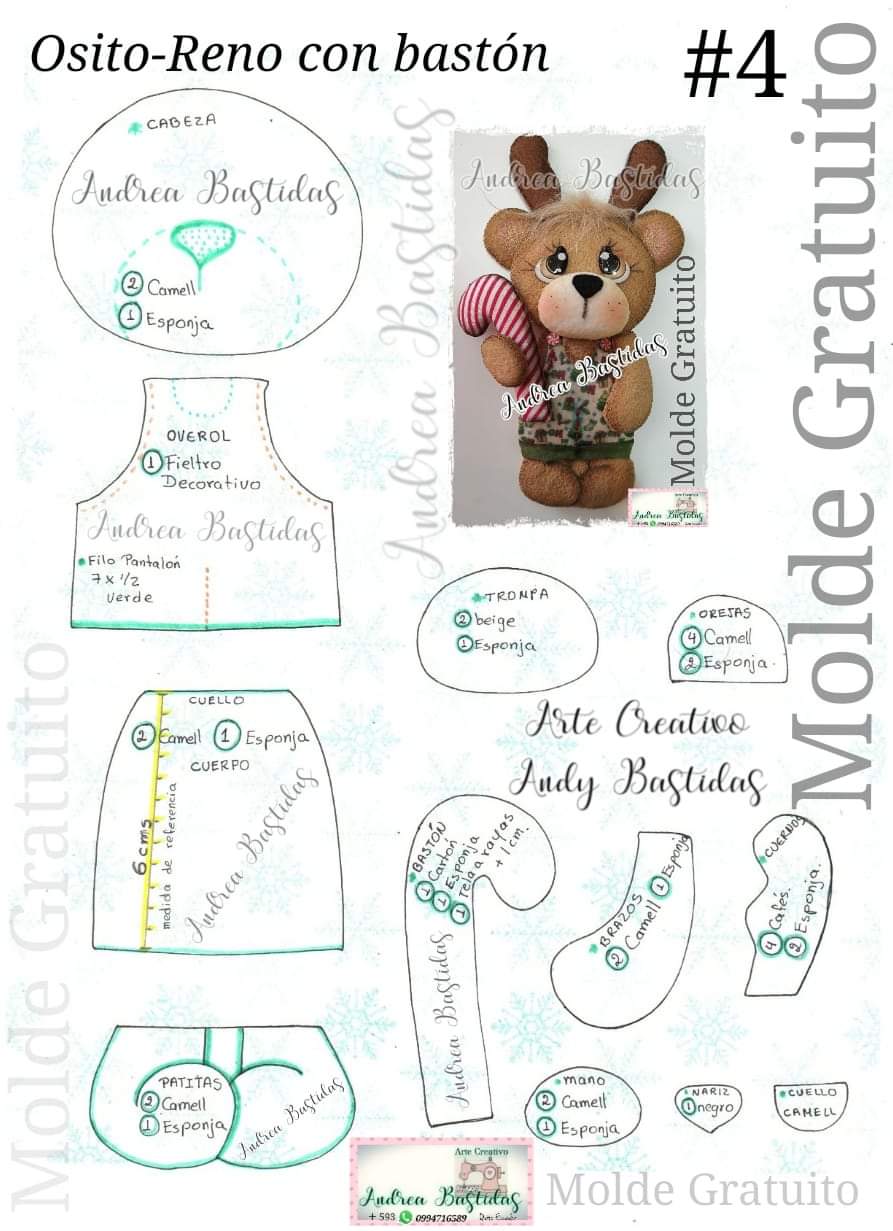 Osito-Reno con bastón
#4
Molde Gratuito
CABEZA
Andrea Bastidas
2 Camell
1 Esponja
Andrea Bastidas
Andrea Bastidas
Andrea Bastidas
Molde Gratuito
Arte Creativo
Andrea Bastidas
OVEROL
1 Fieltro
Decorativo
Andrea Bastidas
Filo Pantalón
7 x 1/2
verde
TROMPA
2 beige
1 Esponja
OREJAS
4 Camell
2 Esponja.
Molde Gratuito
CUELLO
2 Camell 1 Esponja
CUERPO
6 cms
medida de referencia
Andrea Bastidas
Arte Creativo
Andy Bastidas
BASTÓN
1 Cartón
1 Esponja
1 Tela a rayas
+ 1 cm.
Andrea Bastidas
BRAZOS
2 Camell 1 Esponja
CUERNOS
4 Cafés.
2 Esponja.
PATITAS
2 Camell
1 Esponja
Andrea Bastidas
mano
2 Camell
1 Esponja
NARIZ
1 negro
CUELLO
CAMELL
Arte Creativo
Andrea Bastidas
+ 593 0994716589
Molde Gratuito